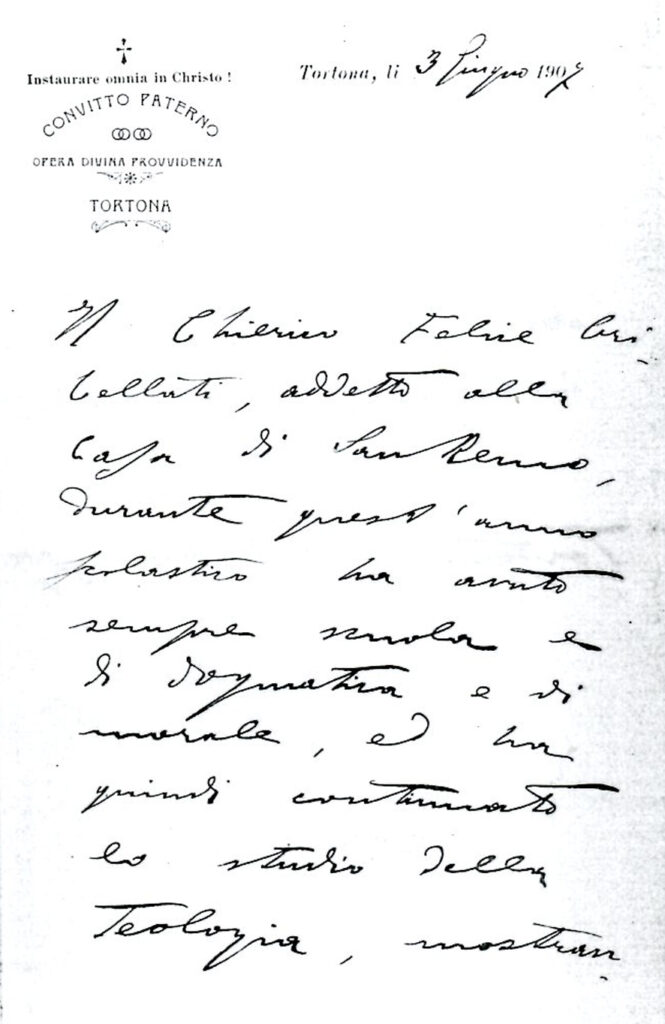 Instaurare omnia in Christo !
CONVITTO PATERNO
OPERA DIVINA PROVVIDENZA
TORTONA
Tortona, li 3 Giugno 1907
Il Chierico Felice Cri-
bellati, addetto alla
Casa di San Remo,
durante quest'anno
scolastico ha avuto
sempre scuola e
di dogmatica e di
morale, ed ha
quindi continuato
lo studio della
Teologia, mostran-